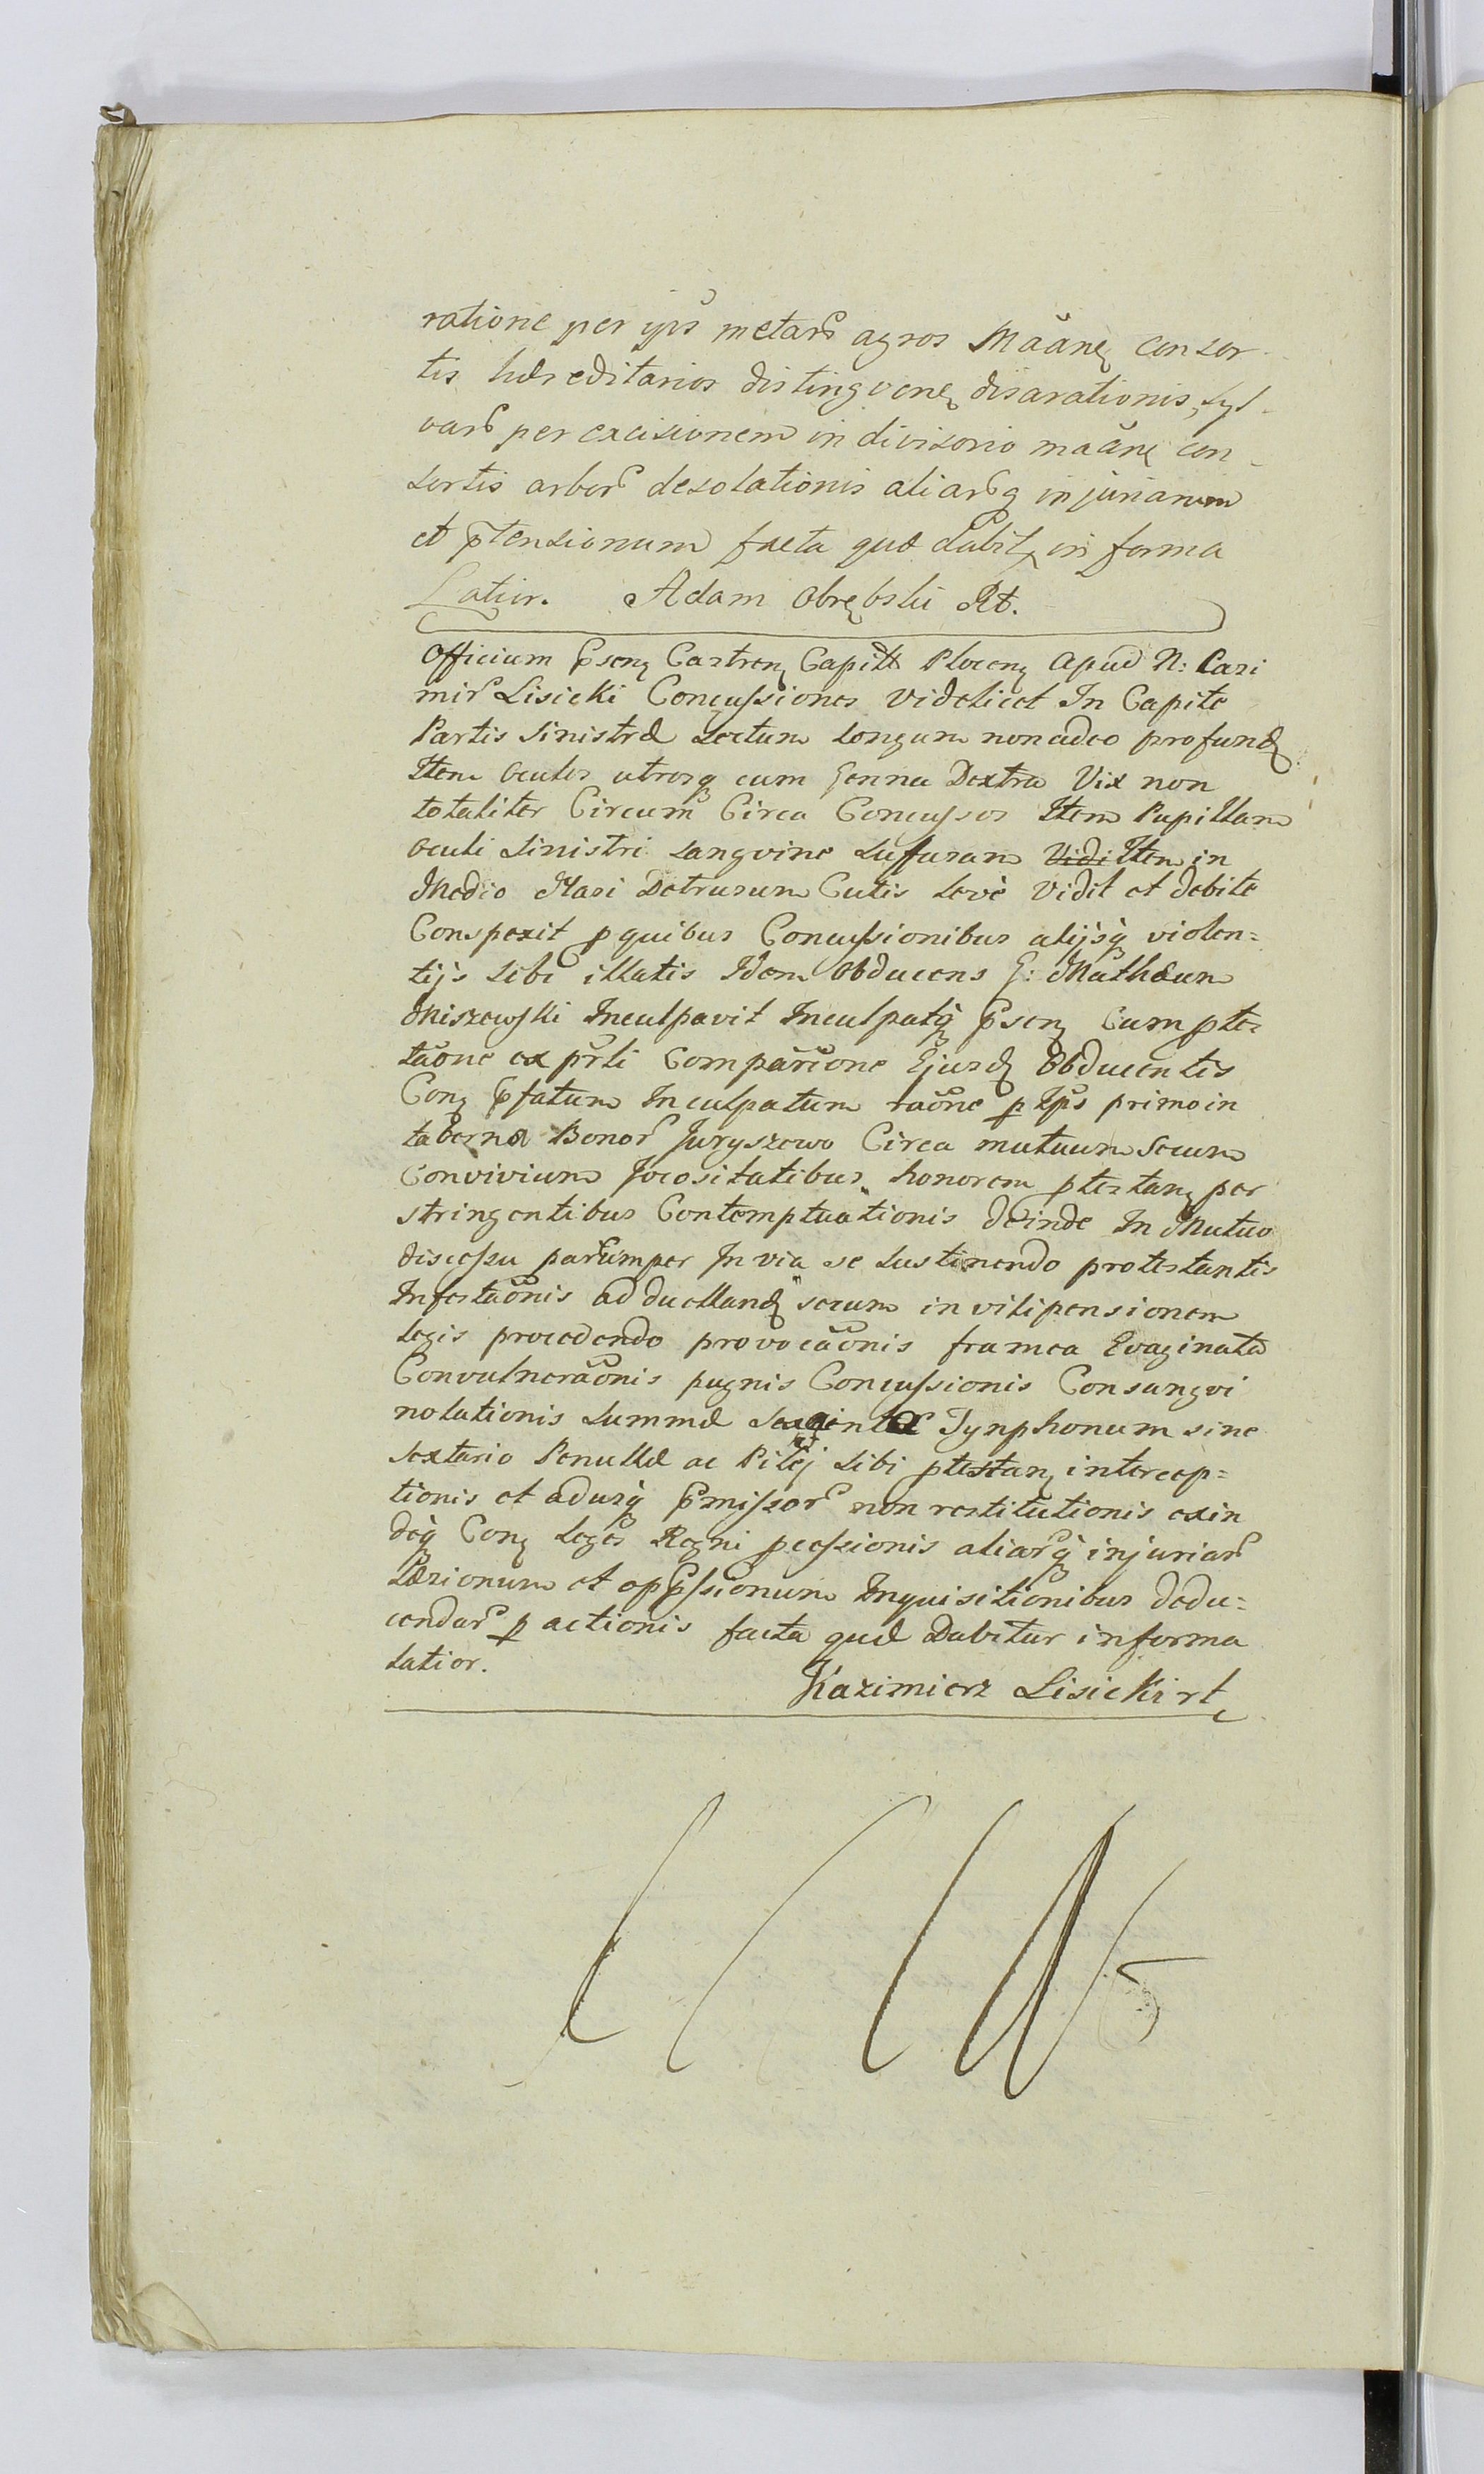 ratione per ips metar agros Maane consor
tis hæreditarios distingvene disarationis, syl
var per excisionem in divisorio maane con
sortis arbor desolationis aliarq injuriarum
et ptensionum facta quæ dabit in forma
Latior. Adam Obrębski Rt.
Officium psen Castren Capitt Plocen apud N: Casi
mir Lisicki Concussiones videlicet In Capite
Partis Sinistræ sectum longum non adeo profund
Item oculos utrosq cum Genna Dextra Vix non
totaliter Circum Circa Concussos Item Pupillam
oculi sinistri sangvine suffusam Vidi Item in
Medio Nasi Detrusum Cutis levè vidit et debite
Conspexit p quibus Concussionibus alijsq violen=
tijs sibi illatis Idem Obducens G: Mathæum
Miszewski Inculpavit Inculpatq psen Cum ptes
taone ex prti Comparione Ejusd Obducentis
Con pfatum Inculpatum raone p Ips primo in
taberna Bonor Juryszewo Circa mutuum Secum
Convivium Jocositatibus honorem ptestan per
stringentibus Contemptuationis deinde In Mutuo
discessu parumper In via se sustinendo protestantis
Infestaonis ad duelland secum in vilipensionem
legis procedendo provocaonis framea Evaginata
Convulneraonis pugnis Concussionis Consangvi
nolationis summæ Tynphonum sine
sextario Penullæ ac Pilej sibi ptestan intercep=
tionis et adusq pmissor non restitutionis exin
deq Con leges Regni pcessionis aliarq injuriar
Læsionum et oppssionum Inquisitionibus dedu=
cendar p actionis facta quæ Dabitur in forma
latior.
Kazimierz Lisicki rt